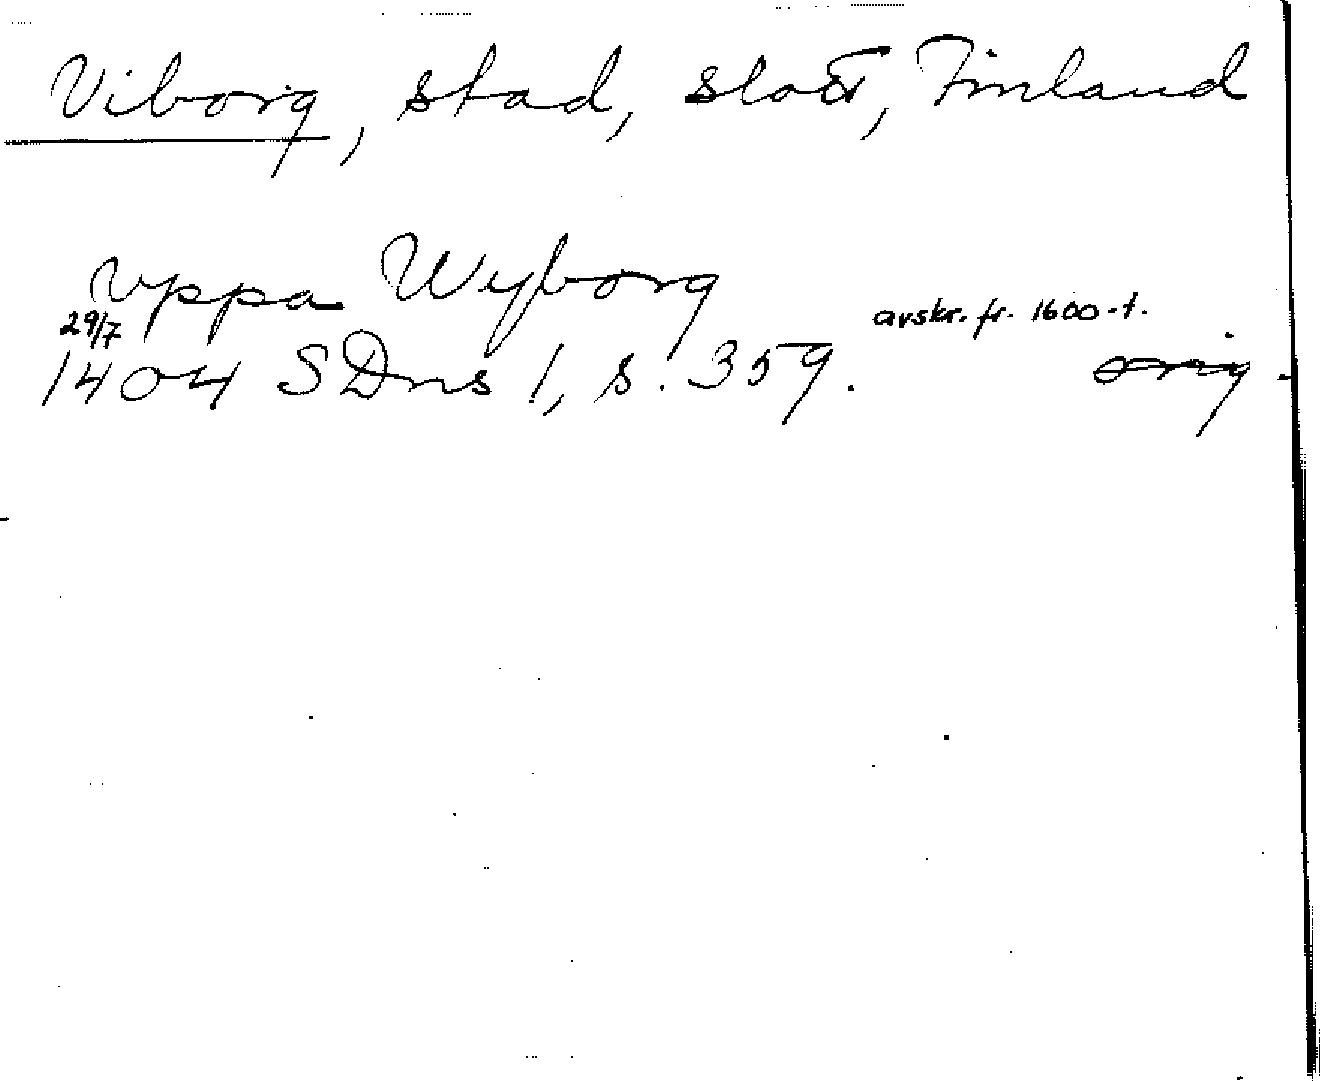 Viborg, stad, slott, Finland
vppa Wyborg
29/7 avskr. fr. 1600-t.
1404 SDns 1, s. 359. orig